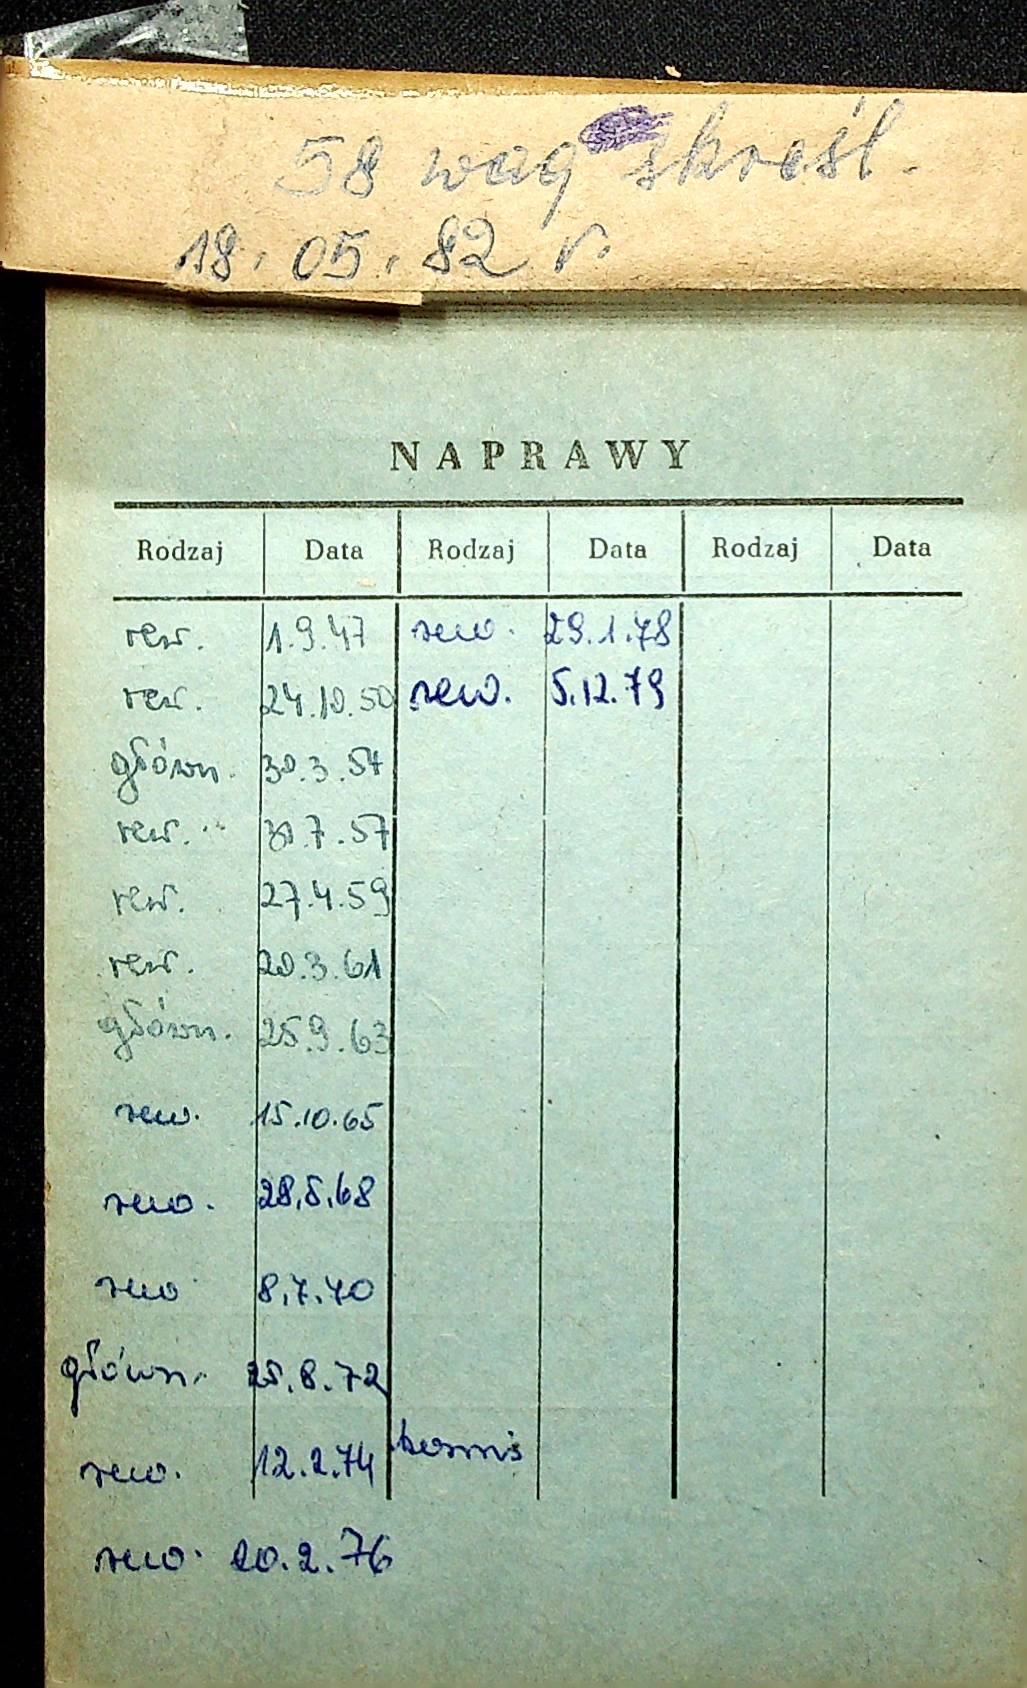 58 wag skreśl.
18.05.82 r.
NAPRAWY
Rodzaj Data Rodzaj Data Rodzaj Data
rew. 1.9.47 rew. 29.1.78
rew. 24.10.50 rew. 5.12.79
główn. 30.3.54
rew. 31.7.57
rew. 27.4.59
rew. 20.3.61
główn. 25.9.63
rew. 15.10.65
rew. 28.5.68
rew 8.7.70
główn. 25.8.72
rew. 12.2.74
rew. 20.2.76